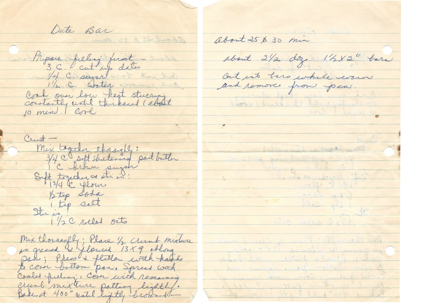 Date Bar
Prepare filling first -
3 C. cut up dates
1/4 C sugar
1 1/2 C water
Cook over low heat stirring
constantly until thickened (about
10 min) Cool
Crust -
Mix together thoroughly:
3/4 C soft shortening part butter
C brown sugar
Sift together & stir in:
1 3/4 C flour
1/2 tsp soda
1 tsp salt
Stir in
1 1/2 C rolled oats
Mix thoroughly; Place 1/2 crumb mixture
in greased & floured 13 x 9 oblong
pan; Press & flatten with hands
to cover bottom pan. Spread with
Cooled filling. Cover with remaining
crumb mixture patting lightly.
Bake at 400° until lightly browned
about 25 to 30 min
about 2 1/2 doz 1 1/2 x 2" bars
Cut into bars while warm
and remove from pan.